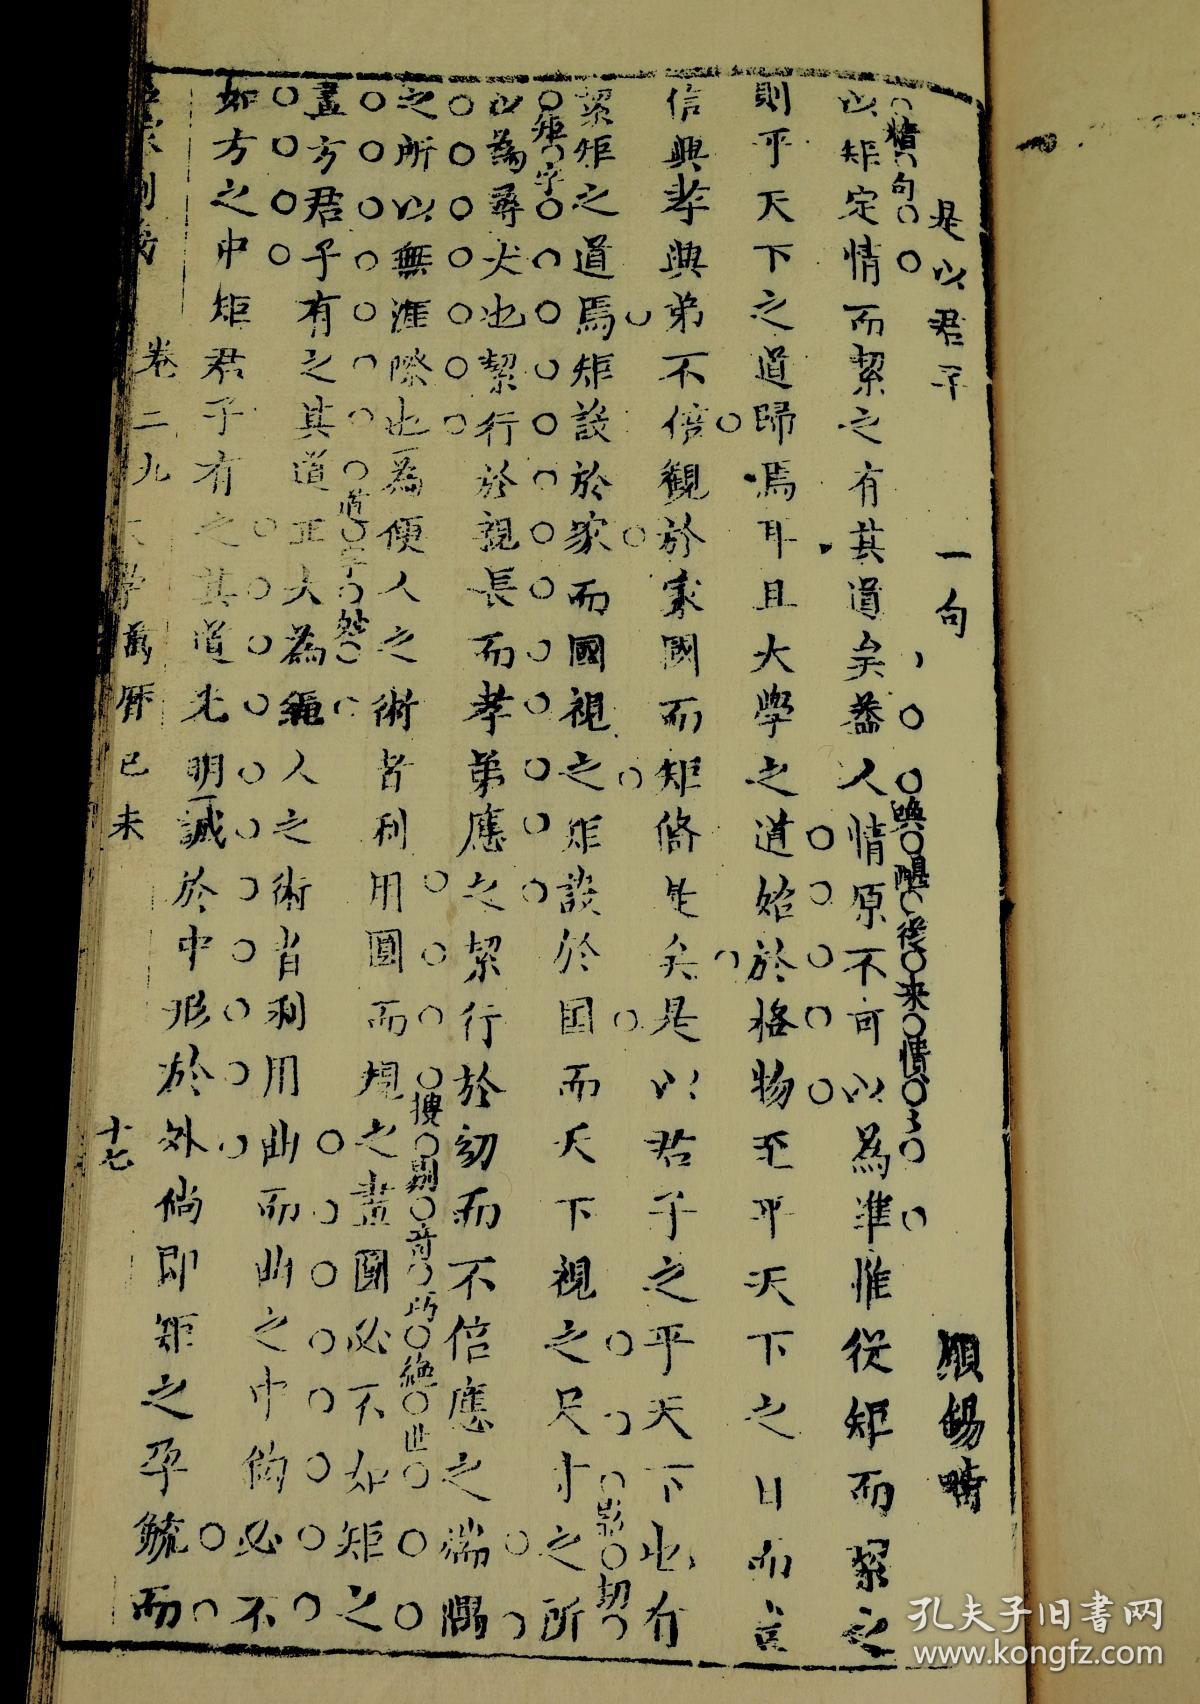 是以君子　一句　顧錫疇
以矩定情而絜之有其道矣蓋人情原不可以為準惟從矩而絜之
精句
喚醒從來情
則平天下之道歸焉耳且大學之道始於格物至平天下之日而言
信興孝興弟不倍觀於家國而矩脩矣是以君子之平天下也有
絜矩之道焉矩設於家而國視之矩設於国而天下視之尺寸之所
矩字
切
以為尋丈也絜行於親長而孝弟應之絜行於幼而不倍應之端隅
之所以無涯際也為便人之術者利用圓而規之畫圓必不如矩之
巧絕世
畫方君子有之其道正大為繩人之術者利用曲而曲之中鈎必不
道字
如方之中矩君子有之其道光明誠於中形於外倘即矩之孕毓而
卷二九　學萬曆己未　十七
孔夫子旧書网
www.kongfz.com